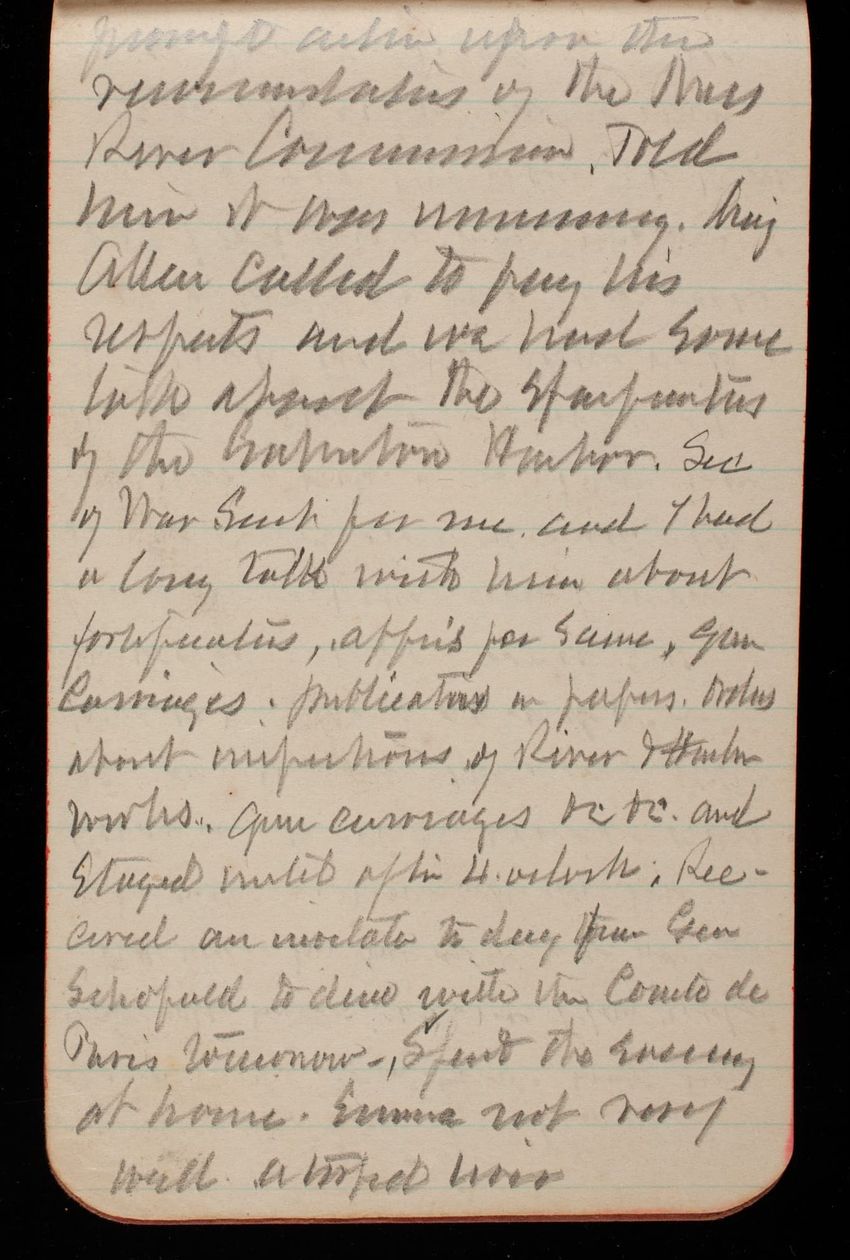 prompt action upon the
recommendations of the Miss
River Commission. Told
him it was unnecessary. Maj
Allen called to pay his
respects and we had some
talk about the
of the Harbor. Sec
of War Sent for me. and I had
a long talk with him about
fortifications, approp for Same, gun
Carriages. publications in papers. Orders
about inspections of River & Harbor
works. gun carriages &c &c. and
Stayed until after 4. oclock. Rec-
eived an invitation to day from Gen
Schofield to dine with the Comte de
Paris tomorrow-, Spent the evening
at home. Emma not very
well.